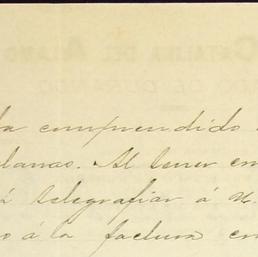 CATALINA DEL ALAMO
la comprendido
lanas. Al tener en
telegrafiar á
o á la factura en